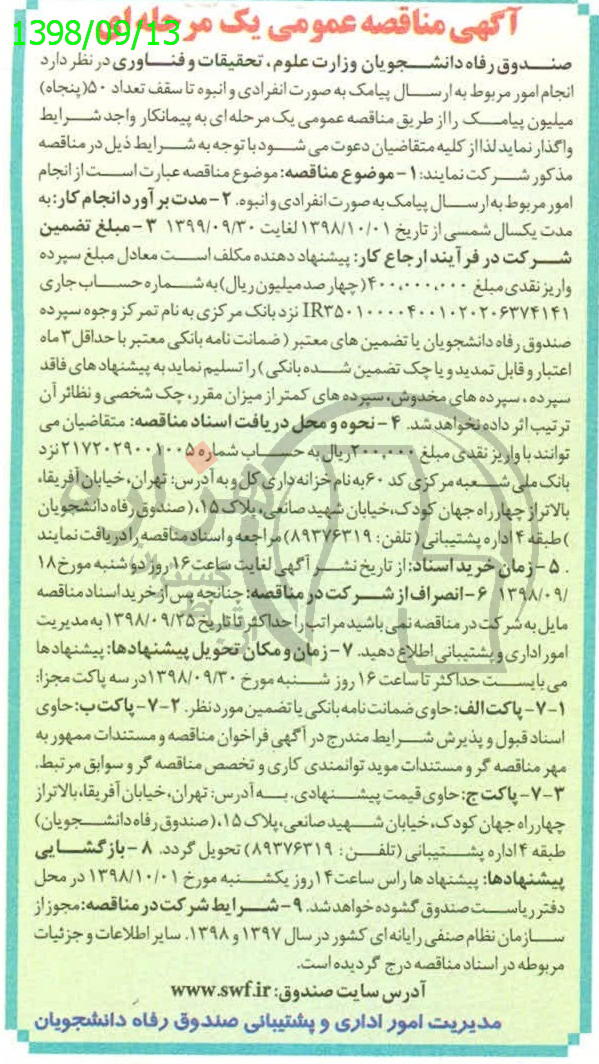 آگهی مناقصه عمومی یک مرحله ای
1398/09/13
صندوق رفاه دانشجویان وزارت علوم، تحقیقات و فناوری در نظر دارد
انجام امور مربوط به ارسال پیامک به صورت انفرادی و انبوه تا سقف تعداد ۵۰(پنجاه)
میلیون پیامک را از طریق مناقصه عمومی یک مرحله ای به پیمانکار واجد شرایط
واگذار نماید لذا از کلیه متقاضیان دعوت می شود با توجه به شرایط ذیل در مناقصه
مذکور شرکت نمایند: ۱- موضوع مناقصه: موضوع مناقصه عبارت است از انجام
امور مربوط به ارسال پیامک به صورت انفرادی و انبوه. ۲- مدت برآورد انجام کار: به
مدت یکسال شمسی از تاریخ ۱۳۹۸/۱۰/۰۱ لغایت ۱۳۹۹/۰۹/۳۰ ۳- مبلغ تضمین
شرکت در فرآیند ارجاع کار: پیشنهاد دهنده مکلف است معادل مبلغ سپرده
واریز نقدی مبلغ ۴۰۰,۰۰۰,۰۰۰ (چهار صد میلیون ریال) به شماره حساب جاری
IR۳۵۰۱۰۰۰۰۴۰۰۱۰۲۰۲۰۶۳۷۴۱۴۱ نزد بانک مرکزی به نام تمرکز وجوه سپرده
صندوق رفاه دانشجویان یا تضمین های معتبر ( ضمانت نامه بانکی معتبر با حداقل ۳ ماه
اعتبار و قابل تمدید و یا چک تضمین شده بانکی) را تسلیم نماید به پیشنهادهای فاقد
سپرده، سپرده های مخدوش، سپرده های کمتر از میزان مقرر، چک شخصی و نظائر آن
ترتیب اثر داده نخواهد شد. ۴- نحوه و محل دریافت اسناد مناقصه: متقاضیان می
توانند با واریز نقدی مبلغ ۲۰۰,۰۰۰ ریال به حساب شماره ۲۱۷۲۰۲۹۰۰۱۰۰۵ نزد
بانک ملی شعبه مرکزی کد ۶۰ به نام خزانه داری کل و به آدرس: تهران، خیابان آفریقا،
بالاتر از چهارراه جهان کودک، خیابان شهید صانعی، پلاک ۱۵، (صندوق رفاه دانشجویان
)طبقه ۴ اداره پشتیبانی ( تلفن: ۸۹۳۷۶۳۱۹) مراجعه و اسناد مناقصه را دریافت نمایند
. ۵- زمان خرید اسناد: از تاریخ نشر آگهی لغایت ساعت ۱۶ روز دو شنبه مورخ ۱۸
/۱۳۹۸/۰۹ ۶- انصراف از شرکت در مناقصه: چنانچه پس از خرید اسناد مناقصه
مایل به شرکت در مناقصه نمی باشید مراتب را حداکثر تا تاریخ ۱۳۹۸/۰۹/۲۵ به مدیریت
امور اداری و پشتیبانی اطلاع دهید. ۷- زمان و مکان تحویل پیشنهادها: پیشنهادها
می بایست حداکثر تا ساعت ۱۶ روز شنبه مورخ ۱۳۹۸/۰۹/۳۰ در سه پاکت مجزا:
۷-۱- پاکت الف: حاوی ضمانت نامه بانکی یا تضمین مورد نظر. ۷-۲- پاکت ب: حاوی
اسناد قبول و پذیرش شرایط مندرج در آگهی فراخوان مناقصه و مستندات ممهور به
مهر مناقصه گر و مستندات موید توانمندی کاری و تخصص مناقصه گر و سوابق مرتبط.
۷-۳- پاکت ج: حاوی قیمت پیشنهادی. به آدرس: تهران، خیابان آفریقا، بالاتر از
چهارراه جهان کودک، خیابان شهید صانعی، پلاک ۱۵، (صندوق رفاه دانشجویان)
طبقه ۴ اداره پشتیبانی (تلفن: ۸۹۳۷۶۳۱۹) تحویل گردد. ۸- بازگشایی
پیشنهادها: پیشنهادها راس ساعت ۱۴ روز یکشنبه مورخ ۱۳۹۸/۱۰/۰۱ در محل
دفتر ریاست صندوق گشوده خواهد شد. ۹- شرایط شرکت در مناقصه: مجوز از
سازمان نظام صنفی رایانه ای کشور در سال ۱۳۹۷ و ۱۳۹۸. سایر اطلاعات و جزئیات
مربوطه در اسناد مناقصه درج گردیده است.
آدرس سایت صندوق: www.swf.ir
مدیریت امور اداری و پشتیبانی صندوق رفاه دانشجویان